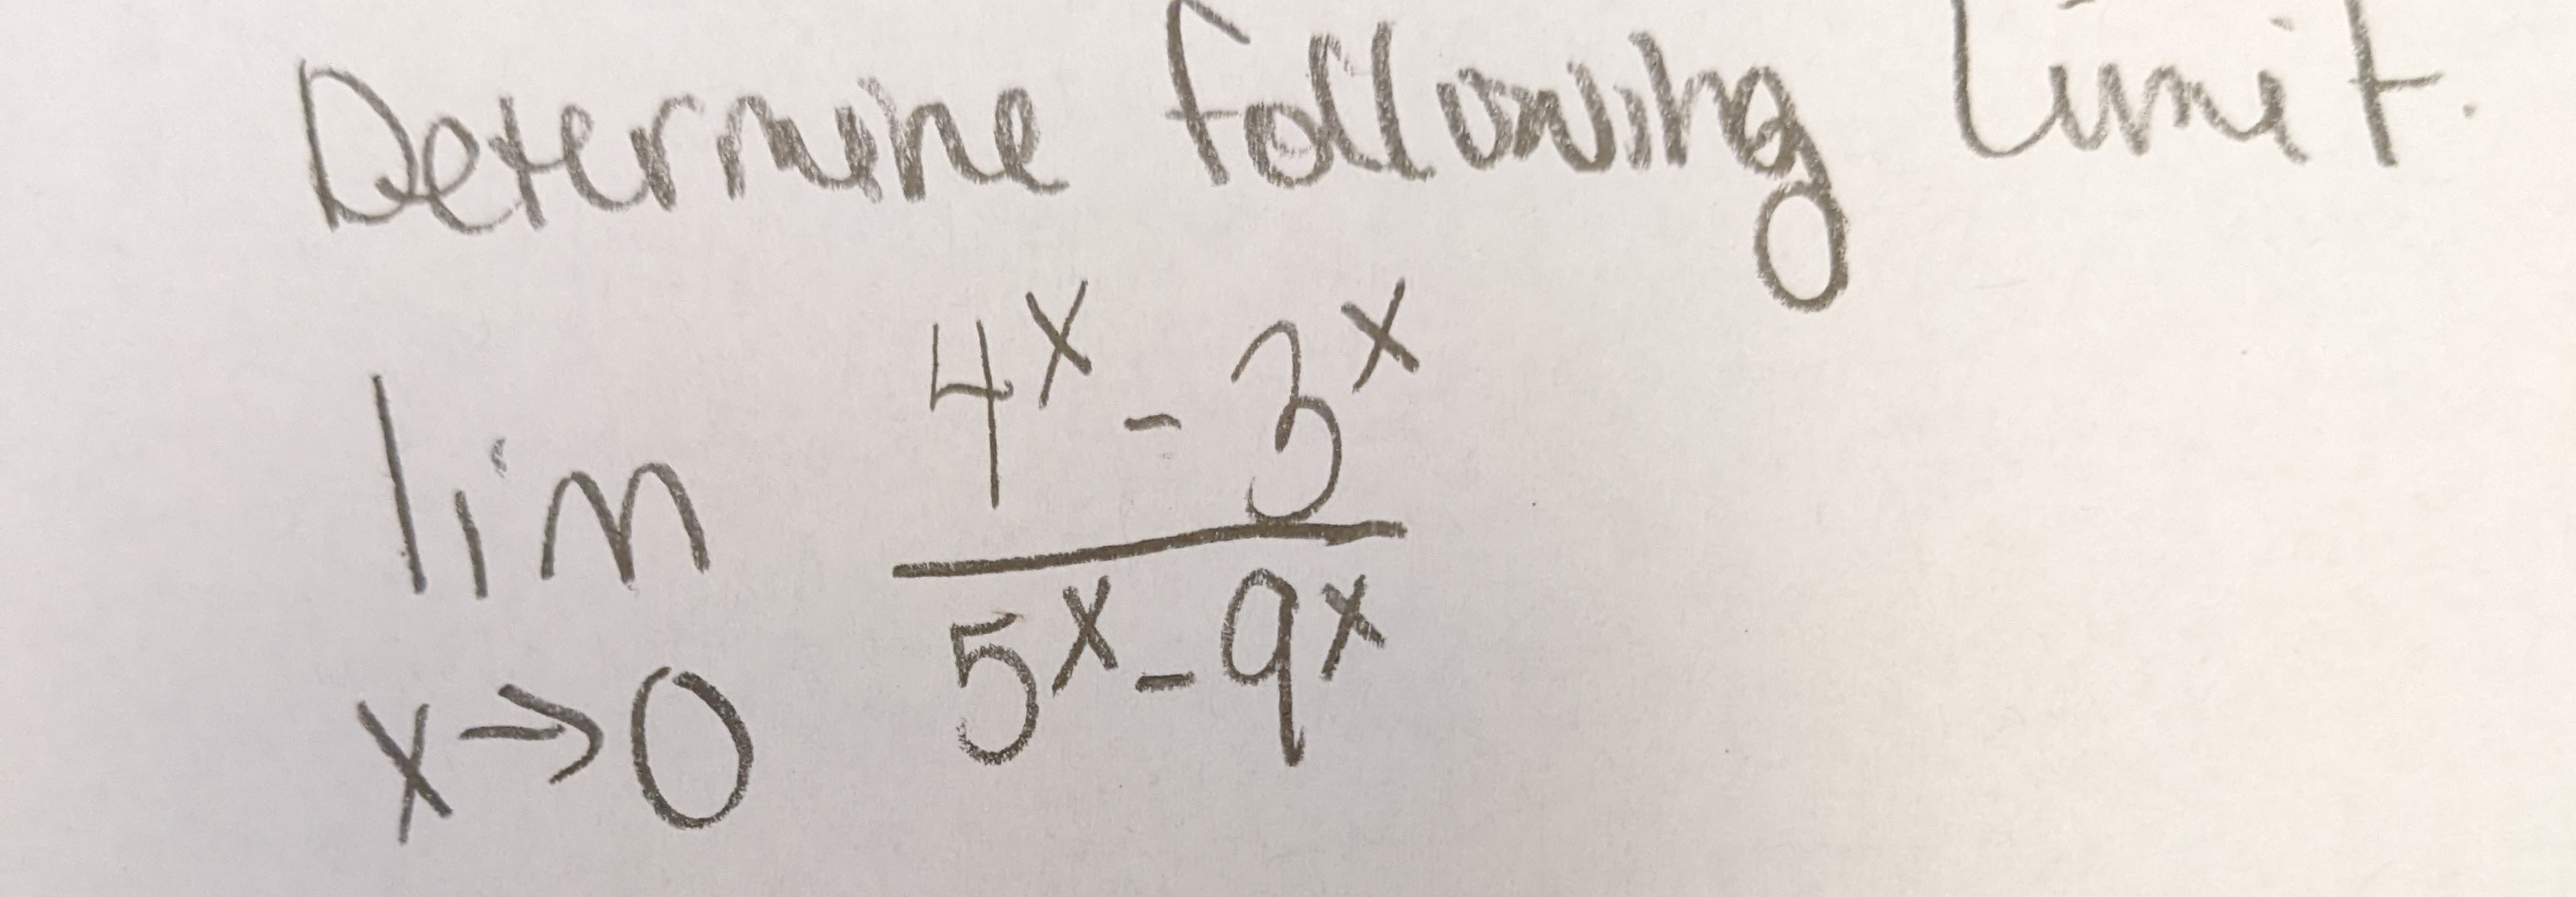 Determine following limit.
lim 4^x - 3^x
x→0 5^x - 9^x